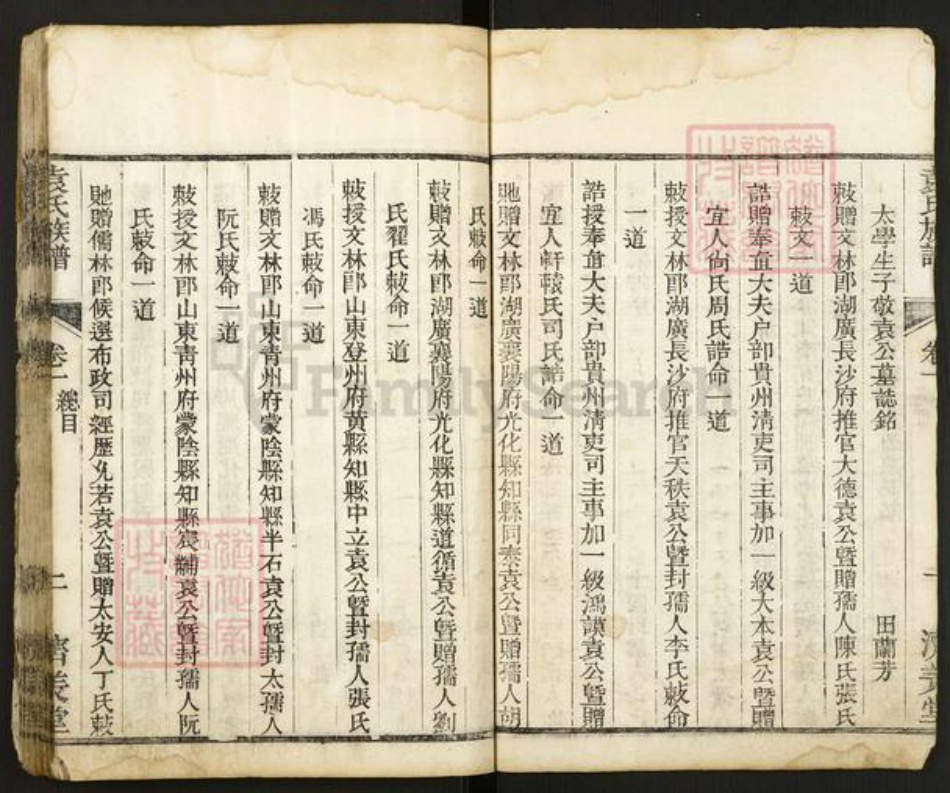 太學生子敬袁公墓誌銘 田蘭芳
敕贈文林郎湖廣長沙府推官大德袁公暨贈孺人陳氏張氏
敕文一道
誥贈奉直大夫户部貴州清吏司主事加一級大本袁公暨贈
宜人尙氏周氏誥命一道
敕授文林郎湖廣長沙府推官天秩袁公暨封孺人李氏敕命
一道
誥授奉直大夫户部貴州清吏司主事加一級鴻謨袁公暨贈
宜人軒轅氏司氏誥命一道
貤贈文林郎湖廣襄陽府光化縣知縣同泰袁公暨贈孺人胡
氏敕命一道
敕贈文林郎湖廣襄陽府光化縣知縣道循袁公暨贈孺人劉
氏翟氏敕命一道
敕授文林郎山東登州府黄縣知縣中立袁公暨封孺人張氏
馮氏敕命一道
敕贈文林郎山東青州府蒙陰縣知縣半石袁公暨封太孺人
阮氏敕命一道
敕授文林郎山東青州府蒙陰縣知縣宸輔袁公暨封孺人阮
氏敕命一道
貤贈儒林郎候選布政司經歷允若袁公暨贈太安人丁氏敕
袁氏族譜 卷一 總目 二 濟美堂
FamilySearch